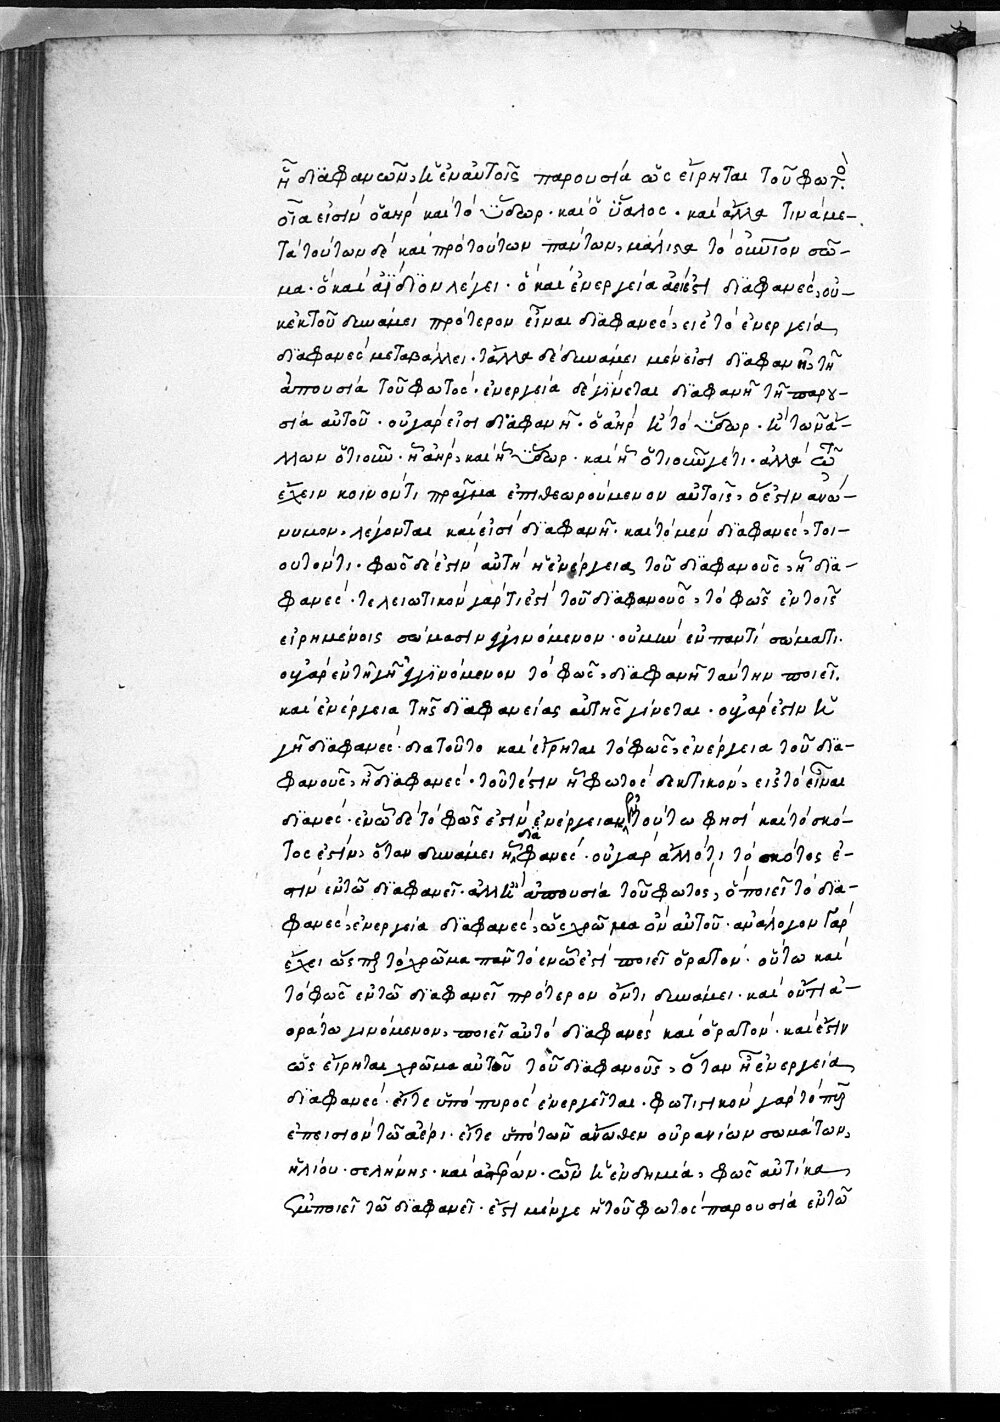 ᾗ διαφανῶν, ἡ ἐν αὐτοῖς παρουσία ὡς εἴρηται τοῦ φωτός.
οἷα εἰσὶν ὁ ἀὴρ καὶ τὸ ὕδωρ· καὶ ὁ ὕαλος· καὶ ἄλλα τινά με-
τὰ τούτων δὲ καὶ πρὸ τούτων πάντων, μάλιστα τὸ σῶ-
μα· ὃ καὶ ἀΐδιον λέγει· ὃ καὶ ἐνεργεία ἀεί ἐστι διαφανές, οὐ-
κ ἐκ τοῦ δυνάμει πρότερον εἶναι διαφανές, εἰς τὸ ἐνεργεία
διαφανὲς μεταβάλλει· τἄλλα δὲ δυνάμει μέν εἰσι διαφανῆ, τῆ
ἀπουσία τοῦ φωτός· ἐνεργεία δὲ γίνεται διαφανῆ τῆ παρου-
σία αὐτοῦ· οὐ γάρ εἰσι διαφανῆ· ὁ ἀὴρ ἢ τὸ ὕδωρ· ἢ τῶν ἄ-
λλων ὁτιοῦν· ἢ ἀήρ, καὶ ἢ ὕδωρ· καὶ ἢ ὁτιοῦν γέ τι· ἀλλὰ τῶ
ἔχειν κοινόν τι πρᾶγμα ἐπιθεωρούμενον αὐτοῖς, ὅ ἐστιν ἀνώ-
νυμον, λέγονται καὶ εἰσὶ διαφανῆ· καὶ τὸ μὲν διαφανές, τοι-
οῦτόν τι· φῶς δέ ἐστιν αὐτὴ ἡ ἐνέργεια τοῦ διαφανοῦς, ἢ δια-
φανές· τελειωτικὸν γάρ τί ἐστι τοῦ διαφανοῦς, τὸ φῶς ἐν τοῖς
εἰρημένοις σώμασιν γινόμενον· οὐ μὴν ἐν παντὶ σώματι·
οὐ γὰρ ἐν τῆ γῆ γινόμενον τὸ φῶς, διαφανῆ ταύτην ποιεῖ.
καὶ ἐνέργεια τῆς διαφανείας αὐτῆς γίνεται· οὐ γάρ ἐστιν ἡ
γῆ διαφανές· διὰ τοῦτο καὶ εἴρηται τὸ φῶς, ἐνέργεια τοῦ δια-
φανοῦς, ᾗ διαφανές· τουτέστιν ᾗ φωτὸς δεκτικόν, εἰς τὸ εἶναι
διανές· ἐν ᾧ δὲ τὸ φῶς ἐστὶν ἐνέργεια, ἐν τούτω φησὶ καὶ τὸ σκό-
τος ἐστίν, ὅταν δυνάμει ἦ διαφανές· οὐ γὰρ ἄλλό τι τὸ σκότος ἐ-
στὶν ἐν τῶ διαφανεῖ· ἀλλ' ἢ ἀπουσία τοῦ φωτός, ὃ ποιεῖ τὸ δια-
φανές, ἐνεργεία διαφανές, ὡς χρῶμα ὂν αὐτοῦ· ἀνάλογον γὰρ
ἔχει ὥσπερ τὸ χρῶμα πᾶν τὸ ἐν ᾧ ἐστὶ ποιεῖ ὁρατόν· οὕτω καὶ
τὸ φῶς ἐν τῶ διαφανεῖ πρότερον ὄντι δυνάμει· καὶ οὔπω ἀ-
οράτω γινόμενον, ποιεῖ αὐτὸ διαφανὲς καὶ ὁρατόν· καὶ ἔστιν
ὡς εἴρηται χρῶμα αὐτοῦ τοῦ διαφανοῦς, ὅταν ἦ ἐνεργεία
διαφανές· εἴτε ὑπὸ πυρὸς ἐνεργεῖται· φωτιστικὸν γὰρ τὸ πῦρ
ἐπεισιὸν τῶ ἀέρι· εἴτε ὑπὸ τῶν ἄνωθεν οὐρανίων σωμάτων,
ἡλίου· σελήνης· καὶ ἄστρων· ὧν ἡ ἐνδημία, φῶς αὐτίκα
ἐμποιεῖ τῶ διαφανεῖ· ἔστι μέν γε ἡ τοῦ φωτὸς παρουσία ἐν τῶ